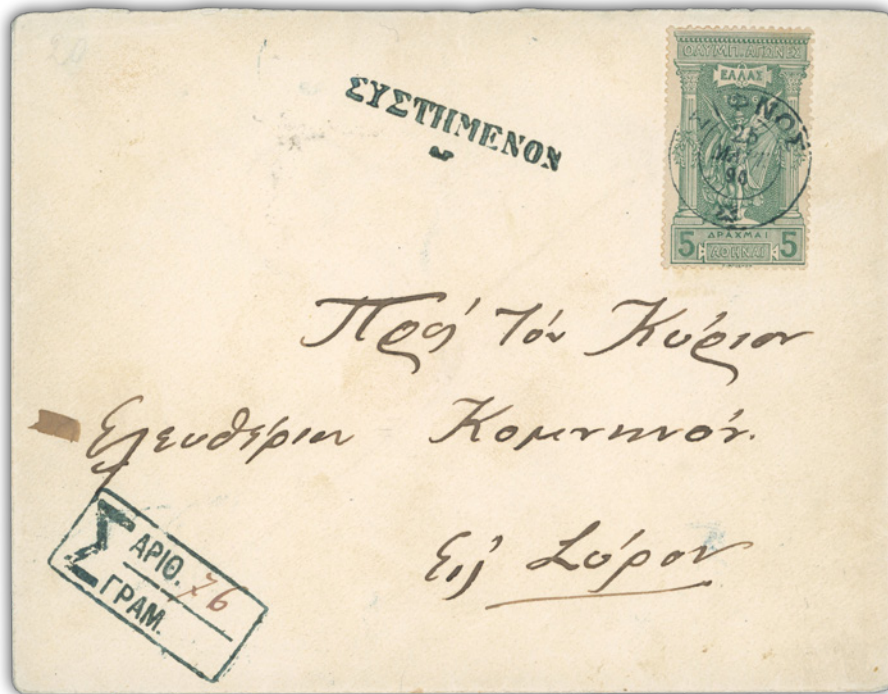 ΣΥΣΤΗΜΕΝΟΝ
ΟΛΥΜΠ. ΑΓΩΝΕΣ
ΕΛΛΑΣ
25
ΔΡΑΧΜΑΙ
5 ΑΘΗΝΑΙ 5
Πρὸς Τὸν Κύριον
Ελευθέριον Κομνηνόν.
Εἰς Σύρον
Σ ΑΡΙΘ. 76
ΓΡΑΜ.